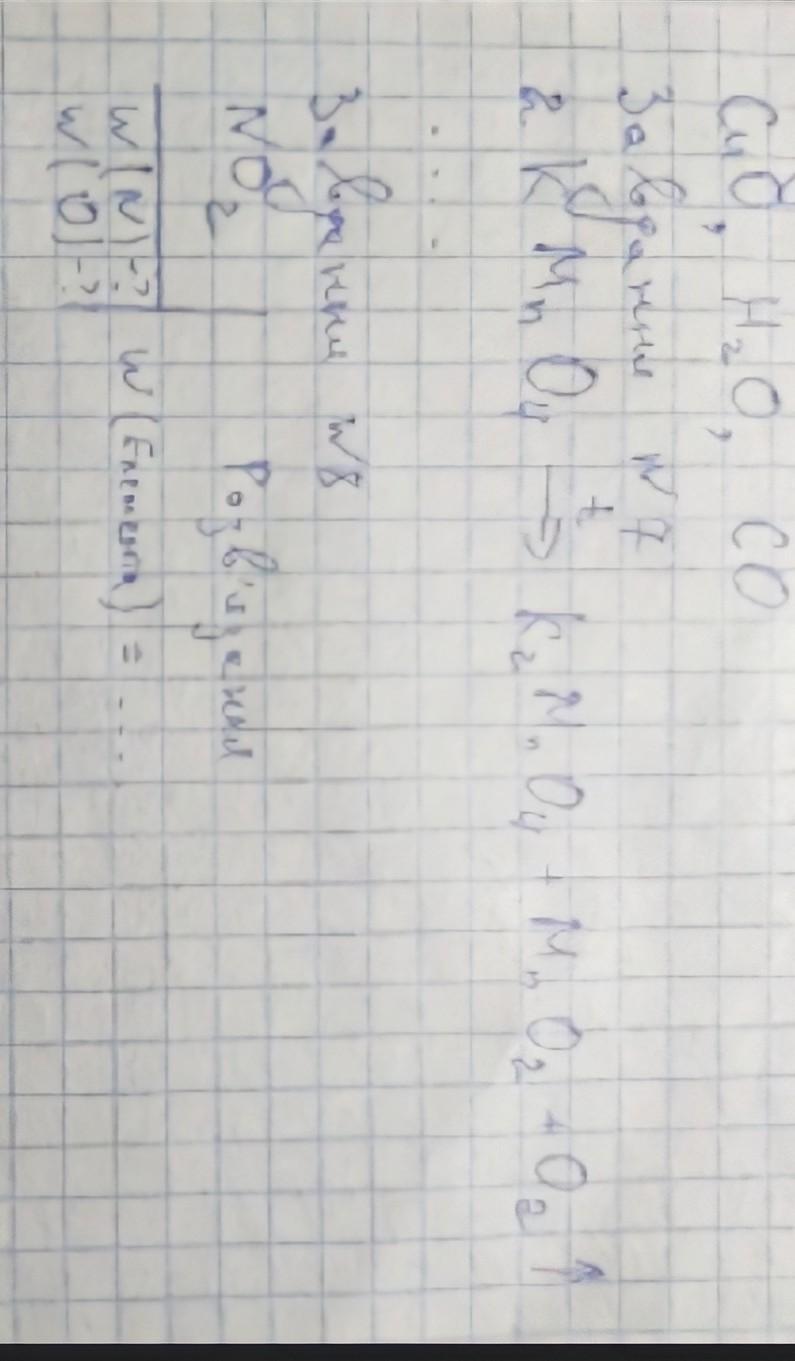 CuO, H₂O, CO
Завдання №7
2 KMnO₄ →ᵗ K₂MnO₄ + MnO₂ + O₂ ↑
. . . .
Завдання №8
NO₂ Розв'язання
W(N)-? W(Елемента) = ....
W(O)-?